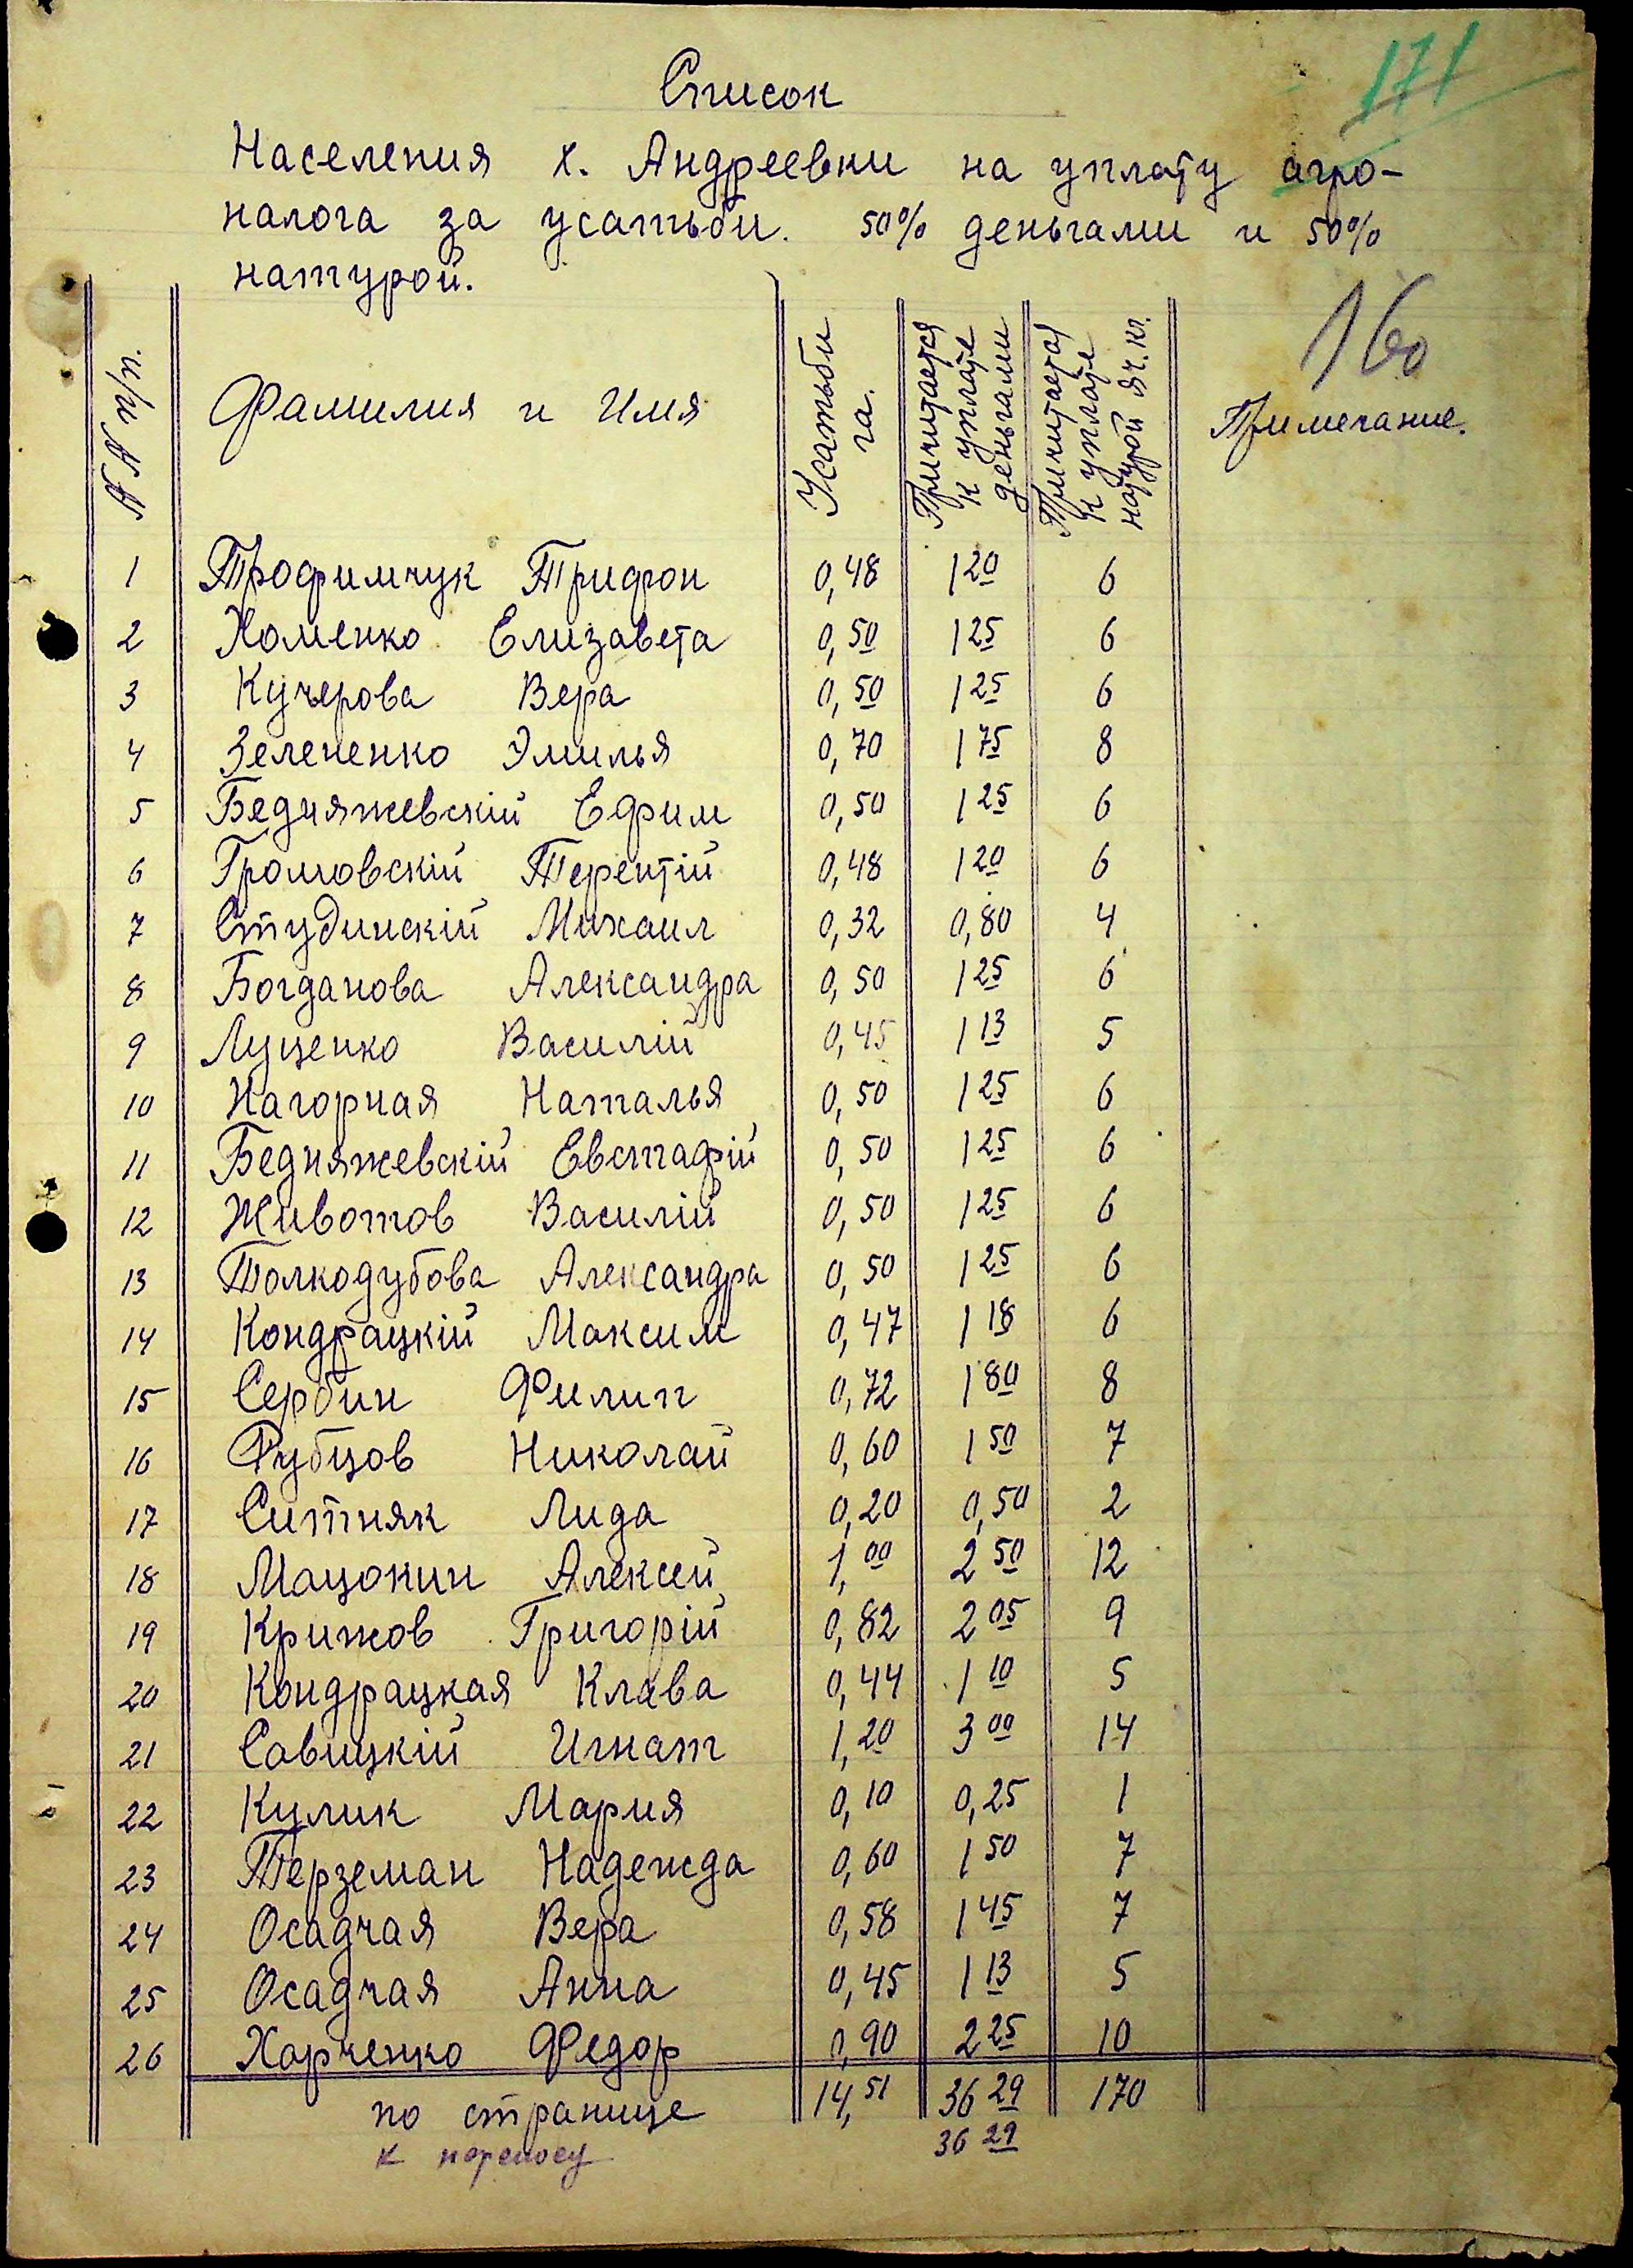 171
Список
Населения х. Андреевки на уплату агро-
налога за усатьби. 50% деньгами и 50%
натурой.
160
№ № п/п. Фамилия и Имя Усатьби га. Причитается к уплате деньгами Причитается к уплате натурой яч. кг. Примечание.
1 Трофимчук Трифон 0,48 1 20 6
2 Хоменко Елизавета 0,50 1 25 6
3 Кучерова Вера 0,50 1 25 6
4 Зелененко Эмилья 0,70 1 75 8
5 Бедняжевскій Ефим 0,50 1 25 6
6 Громовскій Терентій 0,48 1 20 6
7 Студинскій Михаил 0,32 0,80 4
8 Богданова Александра 0,50 1 25 6
9 Луценко Василій 0,45 1 13 5
10 Нагорная Наталья 0,50 1 25 6
11 Бедняжевскій Евстафій 0,50 1 25 6
12 Животов Василій 0,50 1 25 6
13 Толкодубова Александра 0,50 1 25 6
14 Кондрацкій Максим 0,47 1 18 6
15 Сербин Филип 0,72 1 80 8
16 Рубцов Николай 0,60 1 50 7
17 Ситняк Лида 0,20 0,50 2
18 Мацокин Алексей 1,00 2 50 12
19 Крижов Григорій 0,82 2 05 9
20 Кондрацкая Клава 0,44 1 10 5
21 Савицкій Игнат 1,20 3 00 14
22 Кулик Мария 0,10 0,25 1
23 Терземан Надежда 0,60 1 50 7
24 Осадчая Вера 0,58 1 45 7
25 Осадчая Анна 0,45 1 13 5
26 Харченко Федор 0,90 2 25 10
по странице 14,51 36 29 170
к переносу 36 29